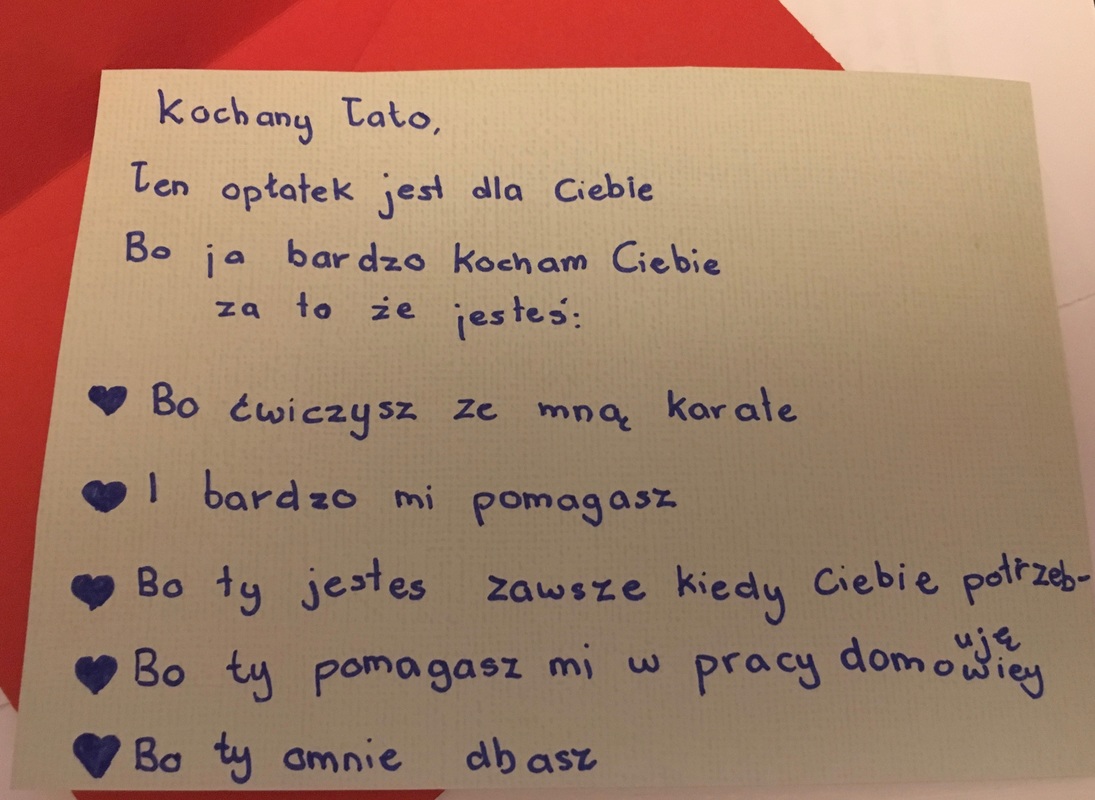 Kochany Tato,
Ten opłatek jest dla Ciebie
Bo ja bardzo kocham Ciebie
za to że jesteś:
♥ Bo ćwiczysz ze mną karate
♥ I bardzo mi pomagasz
♥ Bo ty jestes zawsze kiedy Ciebie potrzeb-
ują
♥ Bo ty pomagasz mi w pracy domowiey
♥ Bo ty omnie dbasz